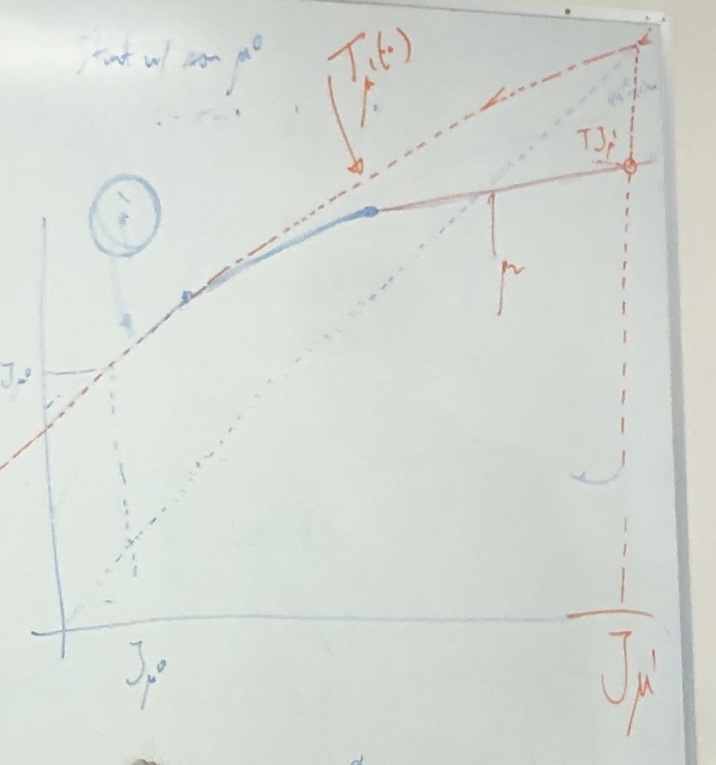 Start w/ som μ⁰
T_μ¹(·)
TJ_μ¹
μ
J_μ⁰
J_μ⁰
J_μ¹